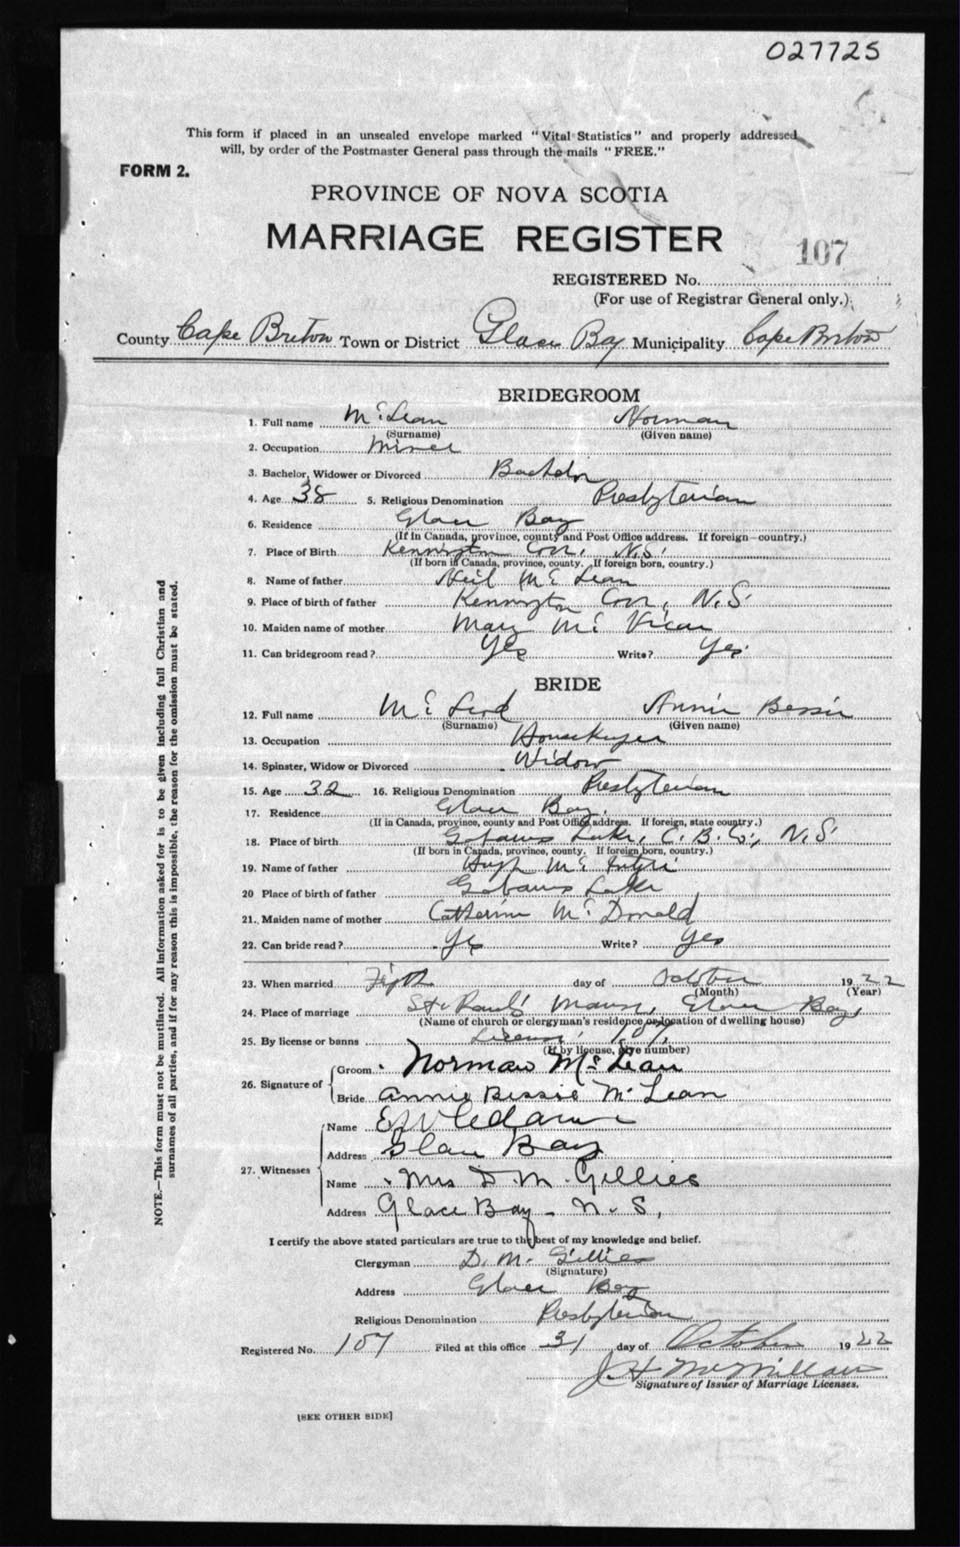 027725
This form if placed in an unsealed envelope marked "Vital Statistics" and properly addressed
will, by order of the Postmaster General pass through the mails "FREE."
FORM 2.
PROVINCE OF NOVA SCOTIA
MARRIAGE REGISTER
107
REGISTERED No.
(For use of Registrar General only.)
County Cape Breton Town or District Glace Bay Municipality Cape Breton
BRIDEGROOM
1. Full name McLean Norman
(Surname) (Given name)
2. Occupation miner
3. Bachelor, Widower or Divorced Bachelor
4. Age 38 5. Religious Denomination Presbyterian
6. Residence Glace Bay
(If in Canada, province, county and Post Office address. If foreign—country.)
7. Place of Birth Kennington Cove, N.S.
(If born in Canada, province, county. If foreign born, country.)
8. Name of father Neil McLean
9. Place of birth of father Kennington Cove, N.S.
10. Maiden name of mother Mary McVicar
11. Can bridegroom read? Yes Write? Yes
BRIDE
12. Full name McLeod Annie Bessie
(Surname) (Given name)
13. Occupation Housekeeper
14. Spinster, Widow or Divorced Widow
15. Age 32 16. Religious Denomination Presbyterian
17. Residence Glace Bay
(If in Canada, province, county and Post Office address. If foreign, state country.)
18. Place of birth Gabarus Lake, C.B.Co., N.S.
(If born in Canada, province, county. If foreign born, country.)
19. Name of father Hugh McIntyre
20 Place of birth of father Gabarus Lake
21. Maiden name of mother Catherine McDonald
22. Can bride read? Yes Write? Yes
23. When married Fifth day of October 1922
(Month) (Year)
24. Place of marriage St. Paul's Manse, Glace Bay,
(Name of church or clergyman's residence or location of dwelling house)
25. By license or banns License, 107,
(If by license, give number)
26. Signature of Groom Norman McLean
Bride Annie Bessie McLean
27. Witnesses
Name
Address Glace Bay
Name Mrs D. M. Gillies
Address Glace Bay - N. S.,
I certify the above stated particulars are true to the best of my knowledge and belief.
Clergyman D. M. Gillies
(Signature)
Address Glace Bay
Religious Denomination Presbyterian
Registered No. 107 Filed at this office 31 day of October 1922
J. H. McMillan
Signature of Issuer of Marriage Licenses.
[SEE OTHER SIDE]
NOTE.—This form must not be mutilated. All information asked for is to be given including full Christian and
surnames of all parties, and if for any reason this is impossible, the reason for the omission must be stated.